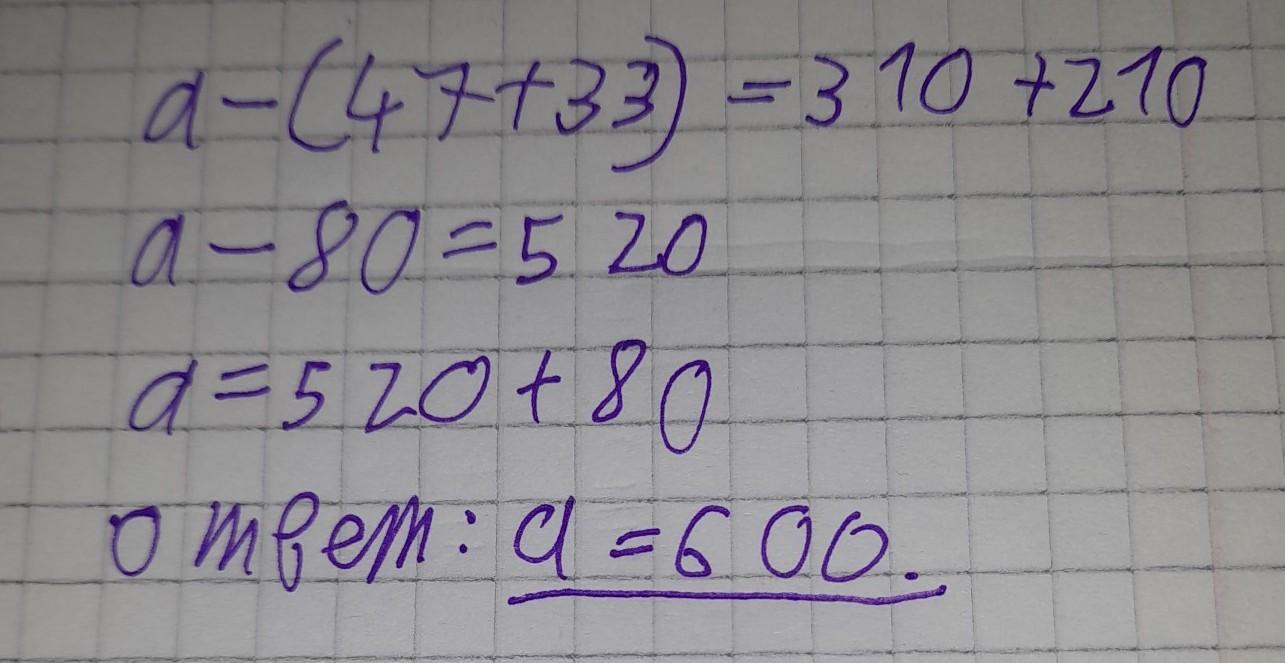 a-(47+33)=310+210
a-80=520
a=520+80
ответ: a=600.